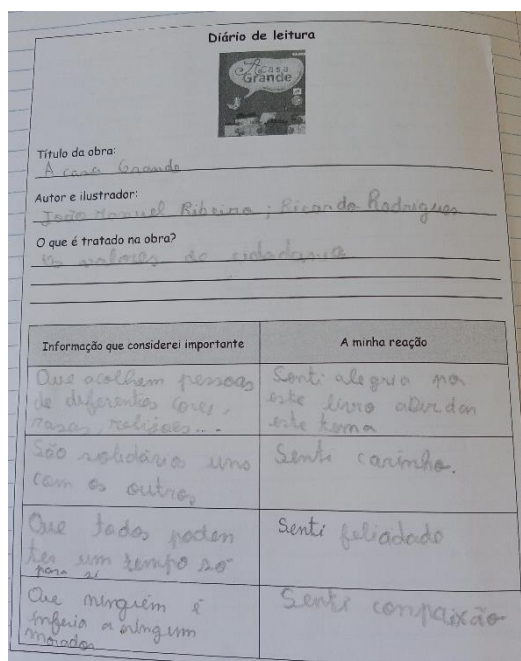 Diário de leitura
A casa
Grande
Título da obra:
A casa Grande
Autor e ilustrador:
João Manuel Ribeiro ; Ricardo Rodrigues
O que é tratado na obra?
Os valores da cidadania
Informação que considerei importante
A minha reação
Que acolhem pessoas
de diferentes cores,
rasas, relisões...
Senti alegria por
este livro abordar
este tema
São solidários uns
com os outros
Senti carinho.
Que todos podem
ter um tempo só
para si
Senti feliadade
Que ninguém é
inferio a ningum
morador
Senti conpaixão